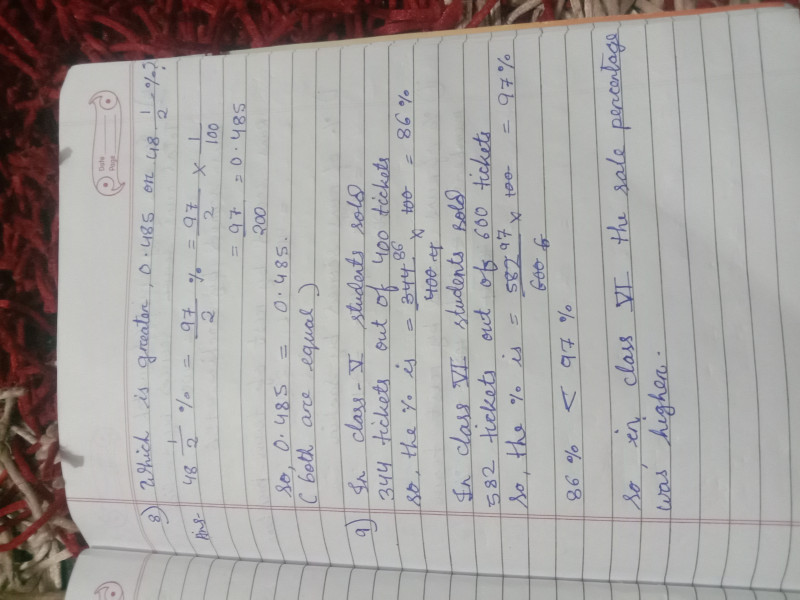 Date
Page
8) Which is greater, 0.485 or 48 1/2 %?
Ans- 48 1/2 % = 97/2 % = 97/2 × 1/100
= 97/200 = 0.485
So, 0.485 = 0.485.
(both are equal)
9) In class-V students sold
344 tickets out of 400 tickets
so, the % is = 344 86/400 4 × 100 = 86%
In class VI students sold
582 tickets out of 600 tickets
so, the % is = 582 97/600 6 × 100 = 97%
86% < 97%
So, in class VI the sale percentage
was higher.